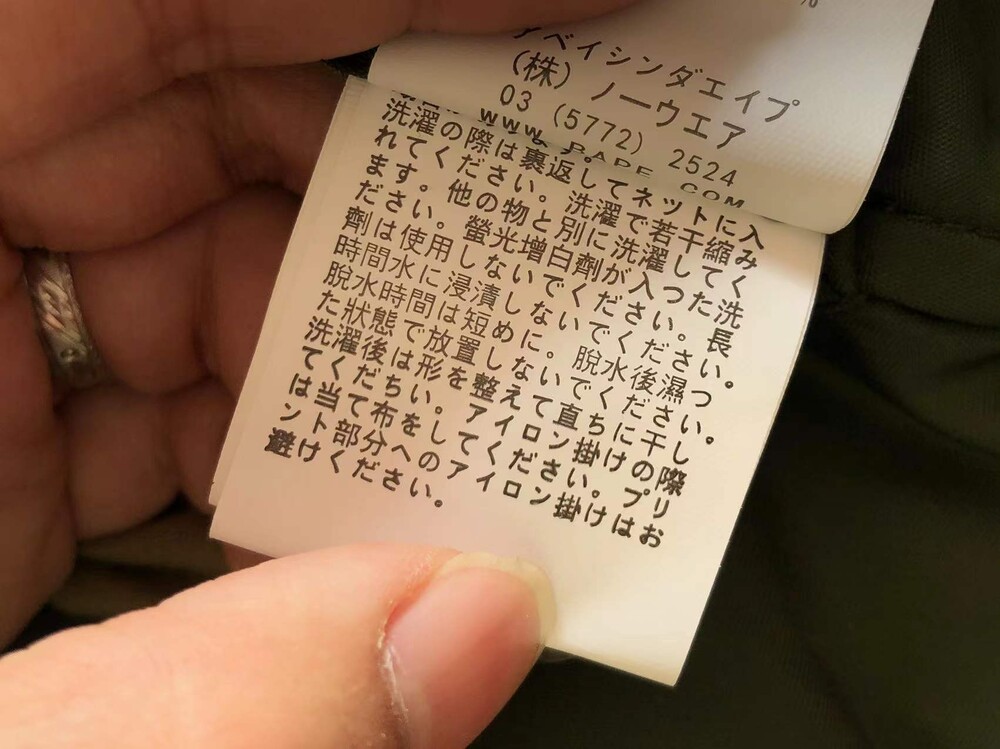 %
アベイシンダエイプ
(株) ノーウエア
03 (5772) 2524
www.BAPE.COM
洗濯の際は裏返してネットに入
れてください。洗濯で若干縮み
ます。他の物と別に洗濯してく
ださい。螢光增白劑が入った洗
劑は使用しないでください。長
時間水に浸漬しないでください。
脫水時間は短めに。脫水後濕っ
た狀態で放置しないでください。
洗濯後は形を整えて直ちに干し
てくだちい。アイロン掛けの際
は当て布をしてください。プリ
ント部分へのアイロン掛けはお
避けください。